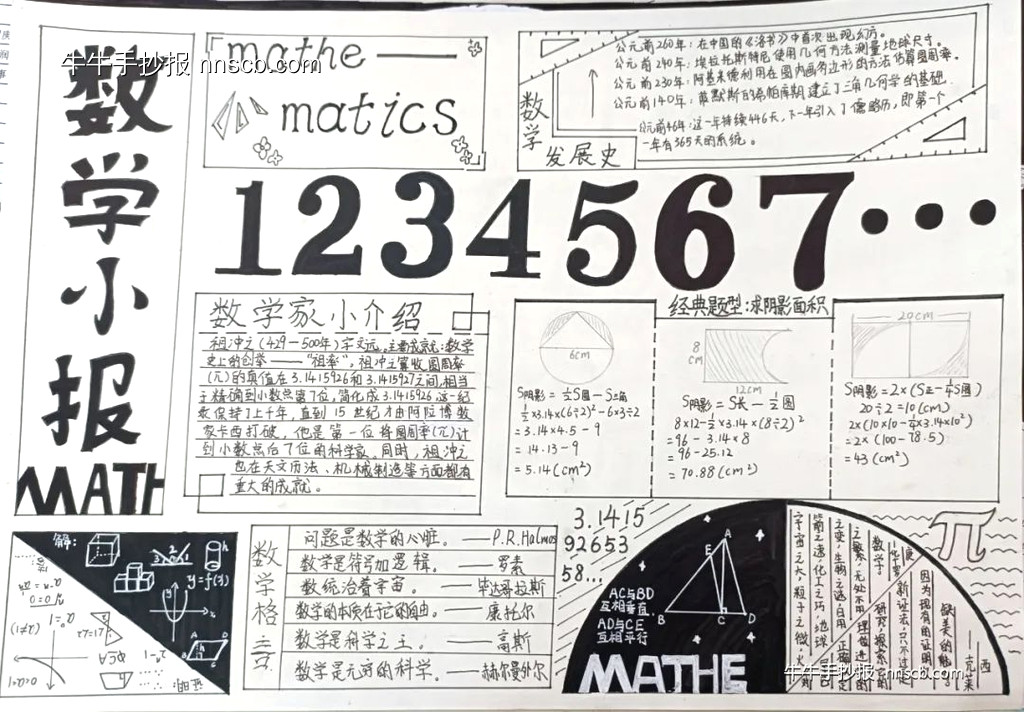 数学小报
MATH
牛牛手抄报 nnscb.com
mathe
matics
数学
发展史
公元前260年：在中国的《洛书》中首次出现幻方。
公元前240年：埃拉托斯特尼使用几何方法测量地球尺寸。
公元前230年：阿基米德利用在圆内画多边形的方法估算圆周率。
公元前140年：
建立了三角几何学的基础.
公元前46年：这一年持续446天，下一年引入了儒略历，即第一个
一年有365天的系统。
1234567...
数学家小介绍
祖冲之（429－500年）字文远。主要成就：数学
史上的创举——“祖率”。祖冲之算出圆周率
(π)的真值在3.1415926和3.1415927之间，相当
于精确到小数点第7位，简化成3.1415926，这一纪
录保持了上千年，直到15世纪才由阿拉伯数
家卡西打破，他是第一位将圆周率(π)计
到小数点后7位的科学家。同时，祖冲之
也在天文历法、机械制造等方面都有
重大的成就。
经典题型：求阴影面积
6cm
S阴影=½S圆-S三角
½×3.14×(6÷2)²-6×3÷2
=3.14×4.5-9
=14.13-9
=5.14(cm²)
8
cm
12cm
S阴影=S长-½圆
8×12-½×3.14×(8÷2)²
=96-3.14×8
=96-25.12
=70.88(cm²)
20cm
S阴影=2×(S正-¼S圆)
20÷2=10(cm)
2×(10×10-¼×3.14×10²)
=2×(100-78.5)
=43(cm²)
解：
h
y=f(3)
证明：
数学格言
问题是数学的心脏。——P.R.Halmos
数学是符号加逻辑。——罗素
数统治着宇宙。——毕达哥拉斯
数学的本质在于它的自由。——康托尔
数学是科学之王。——高斯
数学是无穷的科学。——赫尔曼外尔
3.1415
92653
58...
A
E
B
C
D
AC与BD
互相垂直.
AD与CE
互相平行
MATHE
宇宙之大，粒子之微，火箭
之速，化工之巧，地球
之变，生物之谜，日用
之繁，无处不用
数学。
——华罗庚
π
牛牛手抄报 nnscb.com